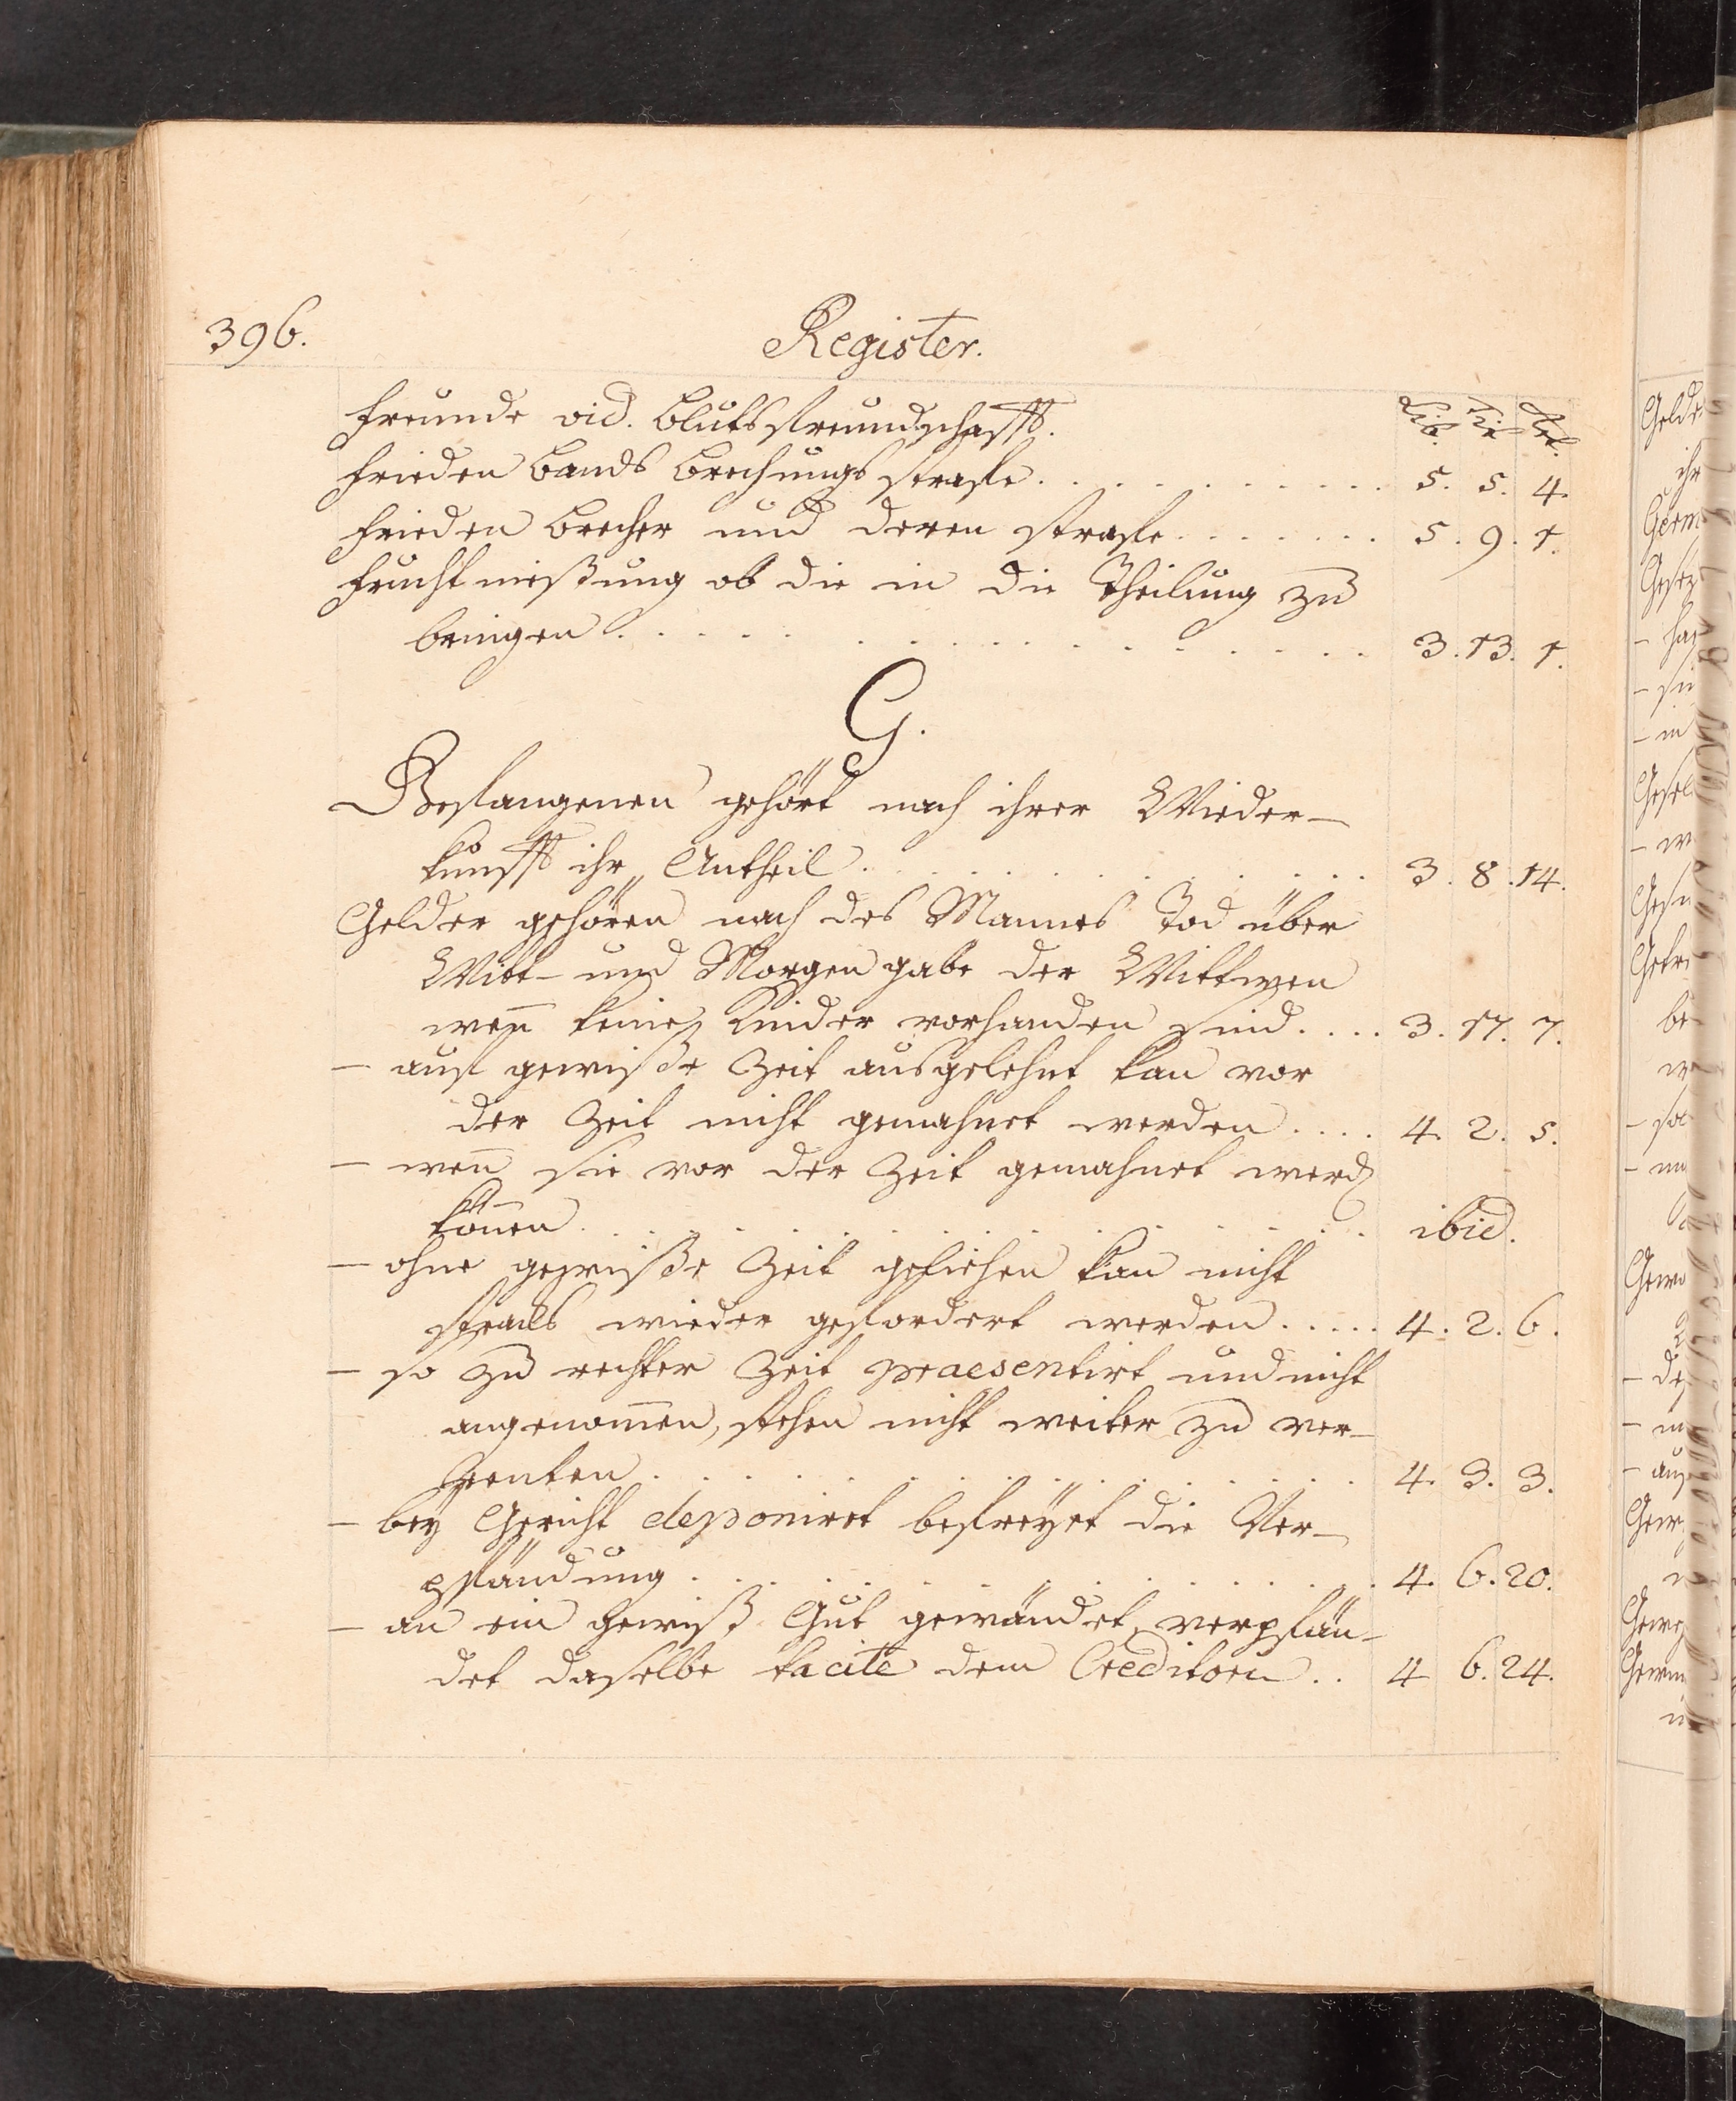 396.
Register.
Lib. Tit. Art.
Freunde vid. Blutsfreundschafft.
Frieden bands brechungs strafe . . . . . . . . . . . 5. 5. 4.
Frieden brecher und deren strafe . . . . . . . 5. 9. 1.
Fruchtnießung ob die in die Theilung zu
bringen . . . . . . . . . . . . . 3. 13. 1.
G.
Gefangenen gehört nach ihrer Wieder-
kunfft ihr Antheil . . . . . . . . . . . 3. 8. 14.
Gelder gehören nach des Mannes Tod über
Witt- und Morgengabe der Wittwen
wen̅ keine Kinder vorhanden sind. . . . 3. 17. 7.
- auf gewiße Zeit ausgelehnt kan vor
der Zeit nicht gemahnet werden . . . . 4. 2. 5.
- wen̅ sie vor der Zeit gemahnet werd
kön̅en . . . . . . . . . . . . . . ibid.
- ohne gewiße Zeit geliehen kan nicht
stracks wieder gefordert werden . . . . . 4. 2. 6.
- so zu rechter Zeit praesentirt und nicht
angenom̅en, stehen nicht weiter zu ver-
renten . . . . . . . . . . . . . 4. 3. 3.
- bey Gericht deponiret befreyet die Ver-
pfändung . . . . . . . . . . . . . 4. 6. 20.
- an ein gewiß Gut gewändet, verpfän-
det daßelbe tacite dem Creditorn . . 4 6. 24.